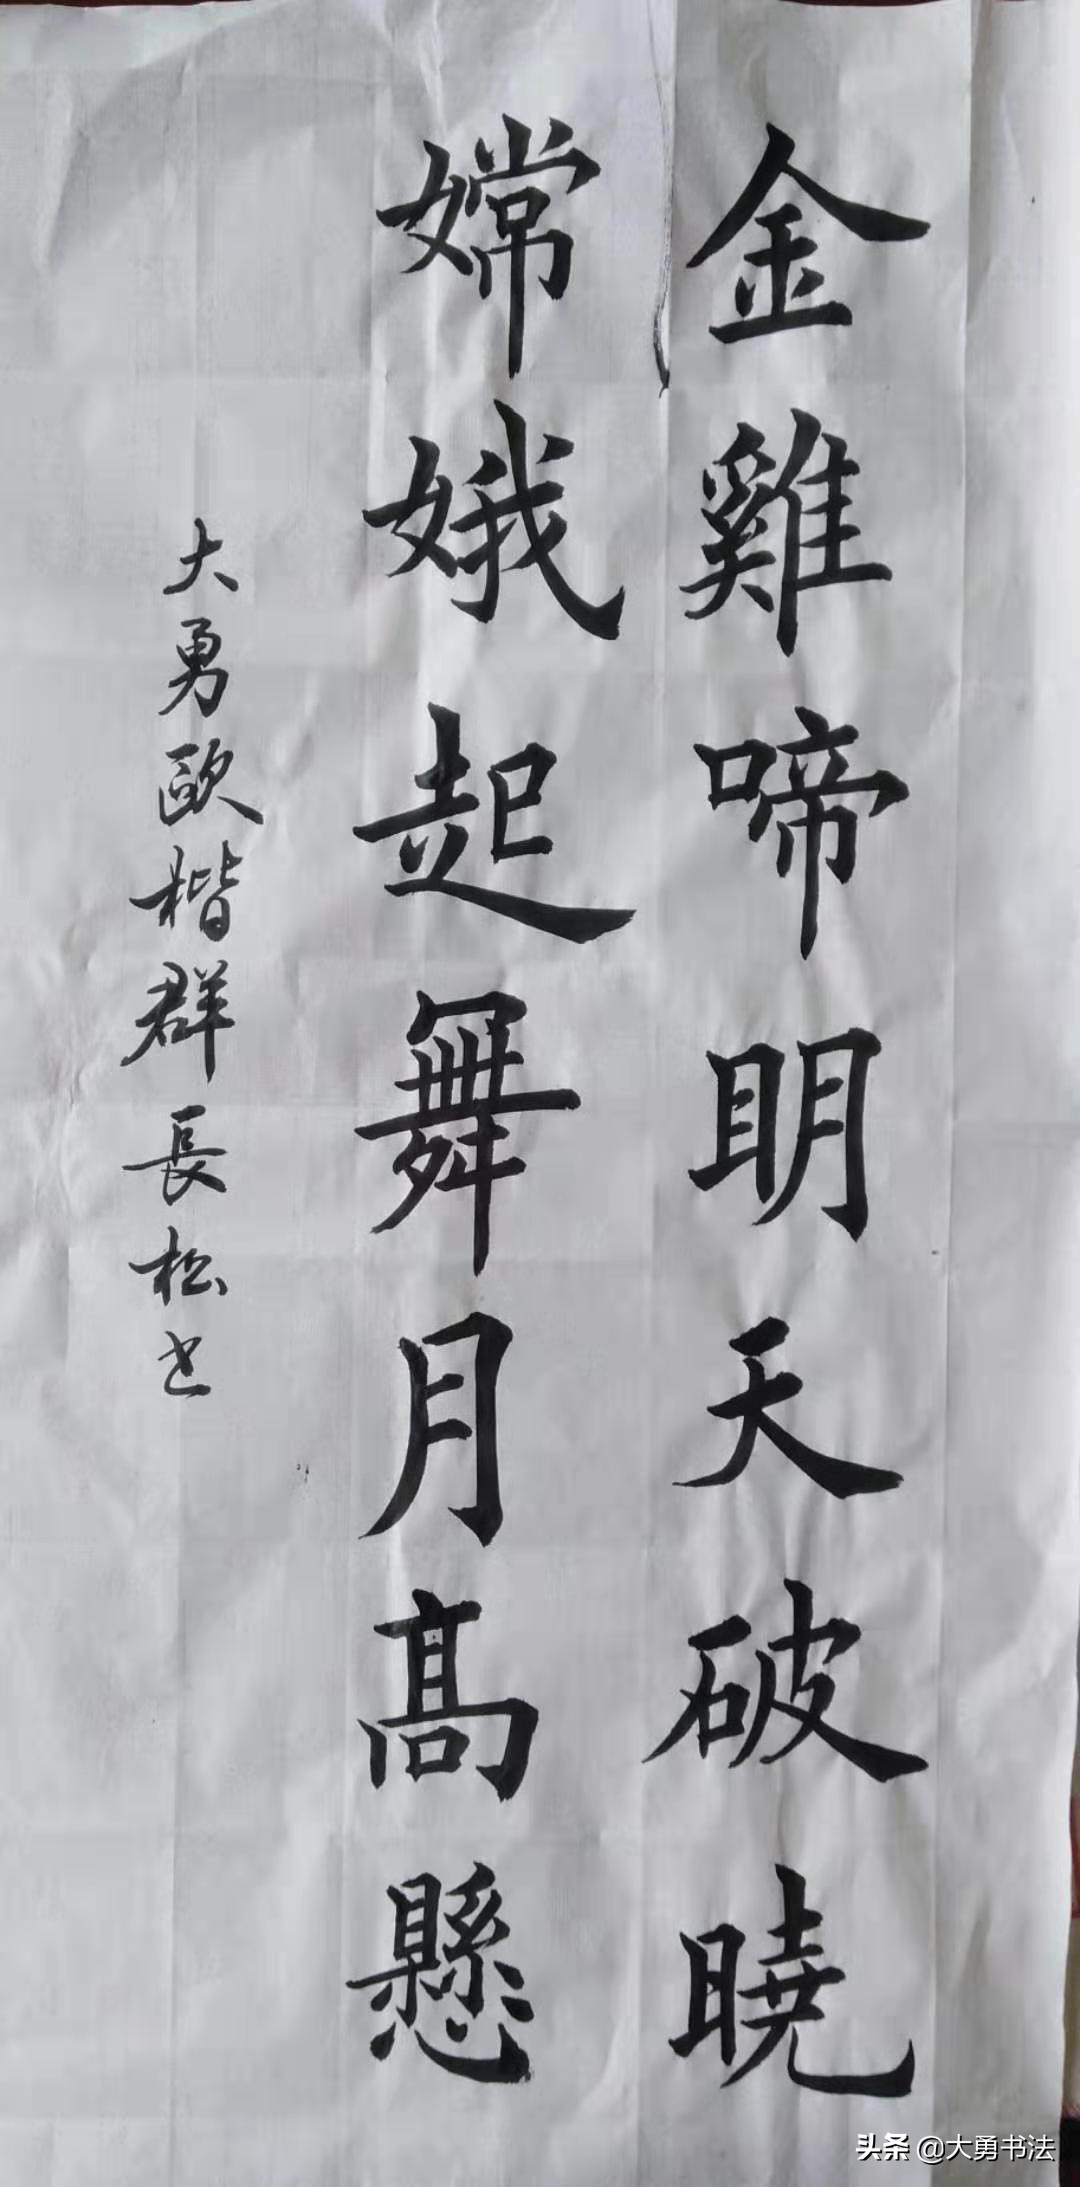 金雞啼明天破曉
嫦娥起舞月高懸
大勇歐楷群長松书
头条 @大勇书法